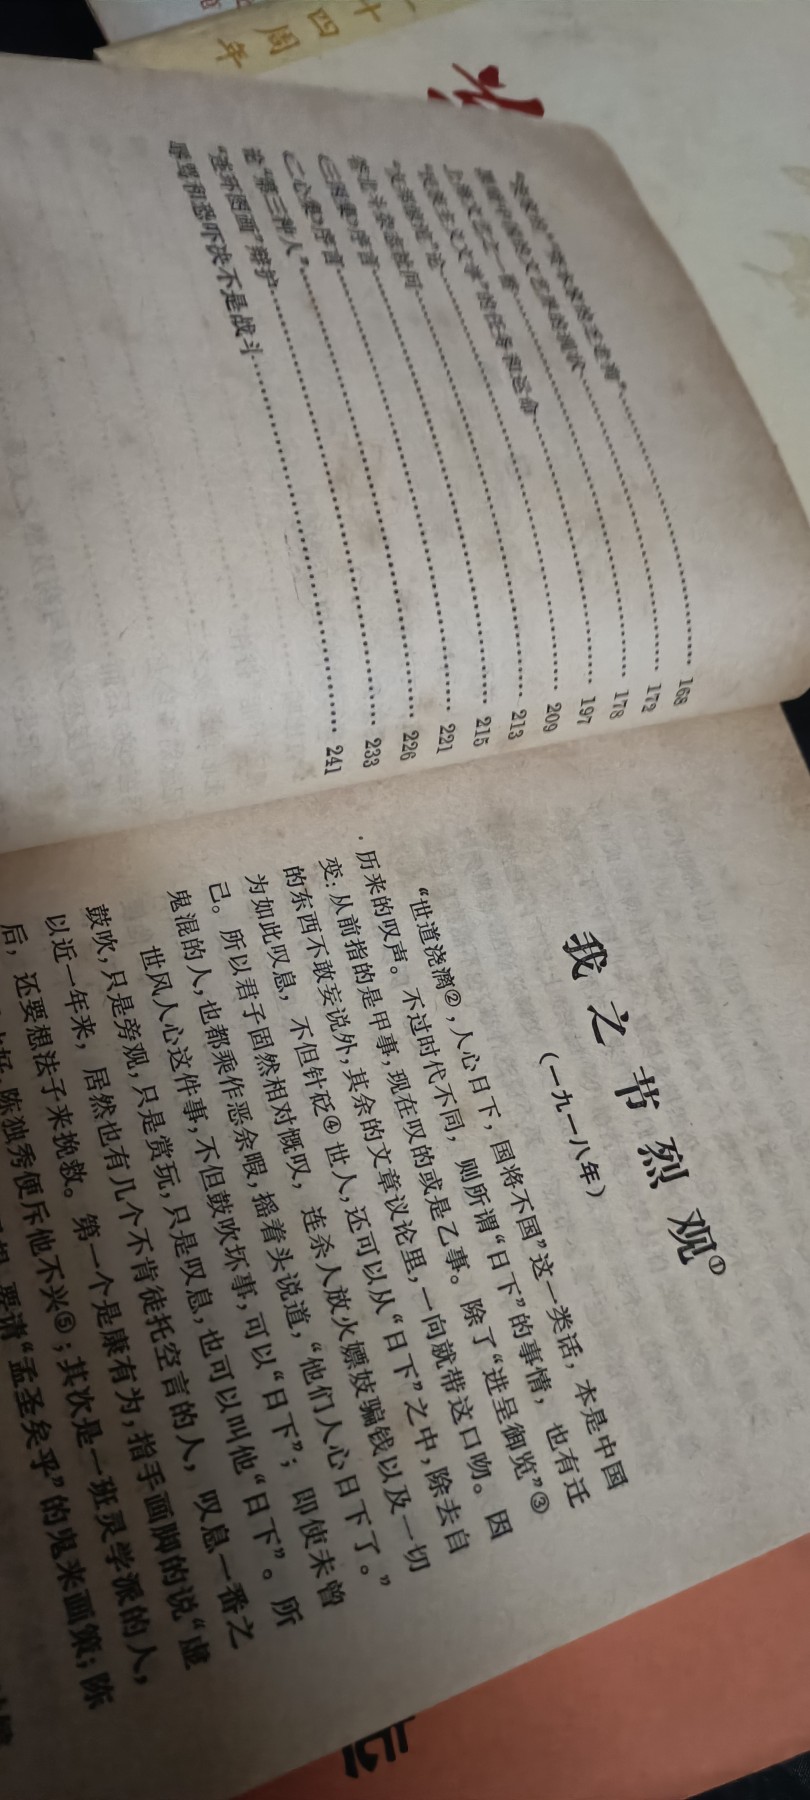 十
四
周
年
“丧家的”“资本家的乏走狗”……168
黑暗中国的文艺界的现状……172
上海文艺之一瞥……178
“民族主义文学”的任务和运命……197
“友邦惊诧”论……209
答北斗杂志社问……213
《三闲集》序言……215
《二心集》序言……221
论“第三种人”……226
“连环图画”辩护……233
辱骂和恐吓决不是战斗……241
我之节烈观①
(一九一八年)
“世道浇漓②,人心日下,国将不国”这一类话,本是中国
历来的叹声。不过时代不同,则所谓“日下”的事情,也有迁
变:从前指的是甲事,现在叹的或是乙事。除了“进呈御览”③
的东西不敢妄说外,其余的文章议论里,一向就带这口吻。因
为如此叹息,不但针砭④世人,还可以从“日下”之中,除去自
己。所以君子固然相对慨叹,连杀人放火嫖妓骗钱以及一切
鬼混的人,也都乘作恶余暇,摇着头说道,“他们人心日下了。”
世风人心这件事,不但鼓吹坏事,可以“日下”;即使未曾
鼓吹,只是旁观,只是赏玩,只是叹息,也可以叫他“日下”。所
以近一年来,居然也有几个不肯徒托空言的人,叹息一番之
后,还要想法子来挽救。第一个是康有为,指手画脚的说“虚
陈独秀便斥他不兴⑤;其次是一班灵学派的人,
要请“孟圣矣乎”的鬼来画策;陈